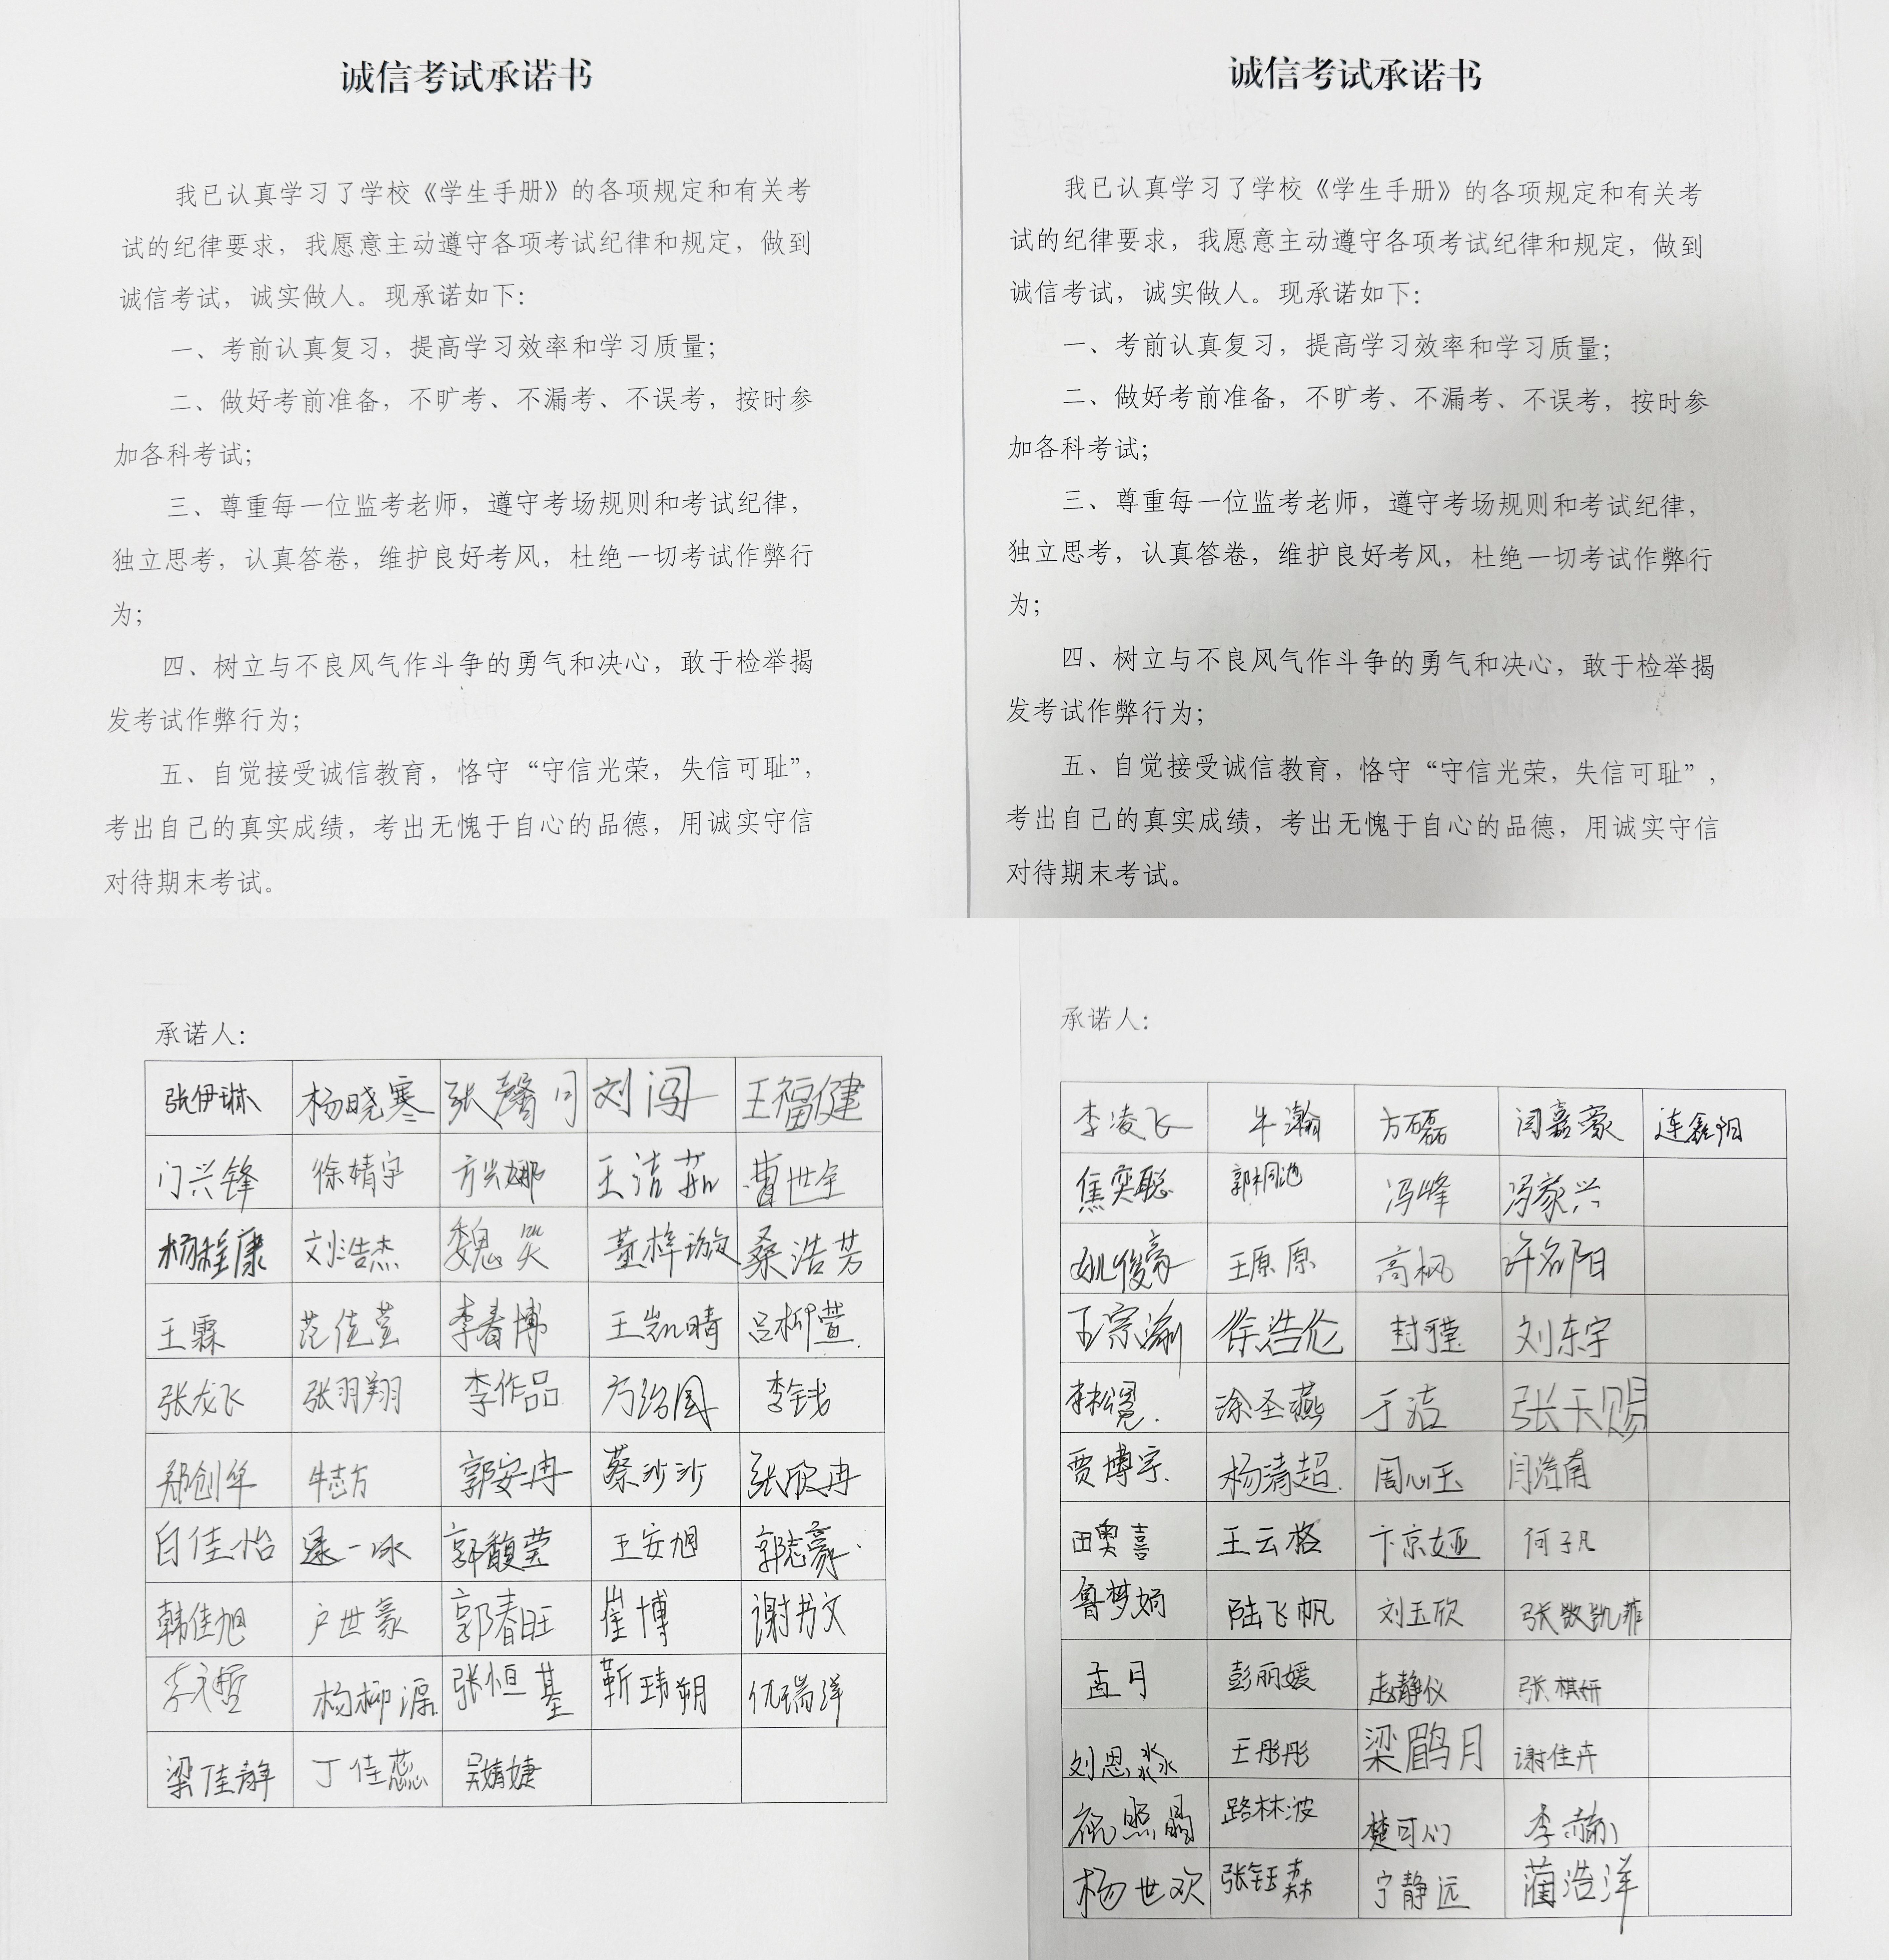 诚信考试承诺书
我已认真学习了学校《学生手册》的各项规定和有关考
试的纪律要求，我愿意主动遵守各项考试纪律和规定，做到
诚信考试，诚实做人。现承诺如下：
一、考前认真复习，提高学习效率和学习质量；
二、做好考前准备，不旷考、不漏考、不误考，按时参
加各科考试；
三、尊重每一位监考老师，遵守考场规则和考试纪律，
独立思考，认真答卷，维护良好考风，杜绝一切考试作弊行
为；
四、树立与不良风气作斗争的勇气和决心，敢于检举揭
发考试作弊行为；
五、自觉接受诚信教育，恪守“守信光荣，失信可耻”，
考出自己的真实成绩，考出无愧于自心的品德，用诚实守信
对待期末考试。
承诺人：
张伊琳 杨晓寒 张馨月 刘闯 王福健
门兴锋 徐婧宇 方兴娜 王洁茹 曹世宇
杨程康 刘浩杰 魏笑 董梓璇 桑浩芳
王霖 范佳莹 李春博 王凯晴 吕柳萱
张龙飞 张羽翔 李作品 方治国 李钱
郑创华 牛志方 郭安冉 蔡沙沙 张欣冉
白佳怡 逯一冰 郭馥莹 王安旭 郭志豪
韩佳旭 户世豪 郭春旺 崔博 谢书文
杨柳潺 张恒基 靳玮朔 仇瑞洋
梁佳静 丁佳蕊 吴婧婕
诚信考试承诺书
我已认真学习了学校《学生手册》的各项规定和有关考
试的纪律要求，我愿意主动遵守各项考试纪律和规定，做到
诚信考试，诚实做人。现承诺如下：
一、考前认真复习，提高学习效率和学习质量；
二、做好考前准备，不旷考、不漏考、不误考，按时参
加各科考试；
三、尊重每一位监考老师，遵守考场规则和考试纪律，
独立思考，认真答卷，维护良好考风，杜绝一切考试作弊行
为；
四、树立与不良风气作斗争的勇气和决心，敢于检举揭
发考试作弊行为；
五、自觉接受诚信教育，恪守“守信光荣，失信可耻”，
考出自己的真实成绩，考出无愧于自心的品德，用诚实守信
对待期末考试。
承诺人：
李凌飞 牛瀚 方磊 闫嘉豪 连鑫阳
焦奕聪 郭桐池 冯峰 冯家兴
姚俊豪 王原原 高枫 许名阳
王宗瀚 徐浩伦 封瑾 刘东宇
涂圣燕 于洁 张天赐
贾博宇 杨清超 周心玉 闫浩南
田奥喜 王云格 卞京娅 何子凡
鲁梦娟 陆飞帆 刘玉欣
孟月 彭丽媛 赵静仪 张棋妍
刘恩淼 王彤彤 梁鹛月 谢佳卉
祝照晶 路林波 楚可人 李赫
杨世欢 张钰森 宁静远 蔺浩洋